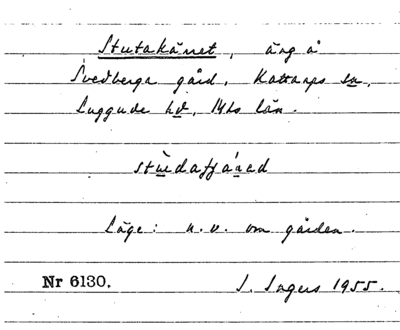 Stutakärret, äng å
Svedberga gård, Kattarps sn,
Luggude hd, Mhs län.
stùdaʃjáred
Läge: n.v. om gården.
Nr 6130. I. Ingers 1955.